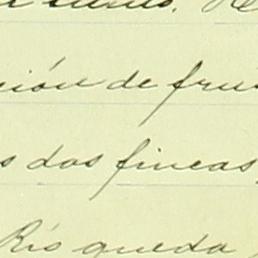 ción de fru
s dos fincas,
Rís queda